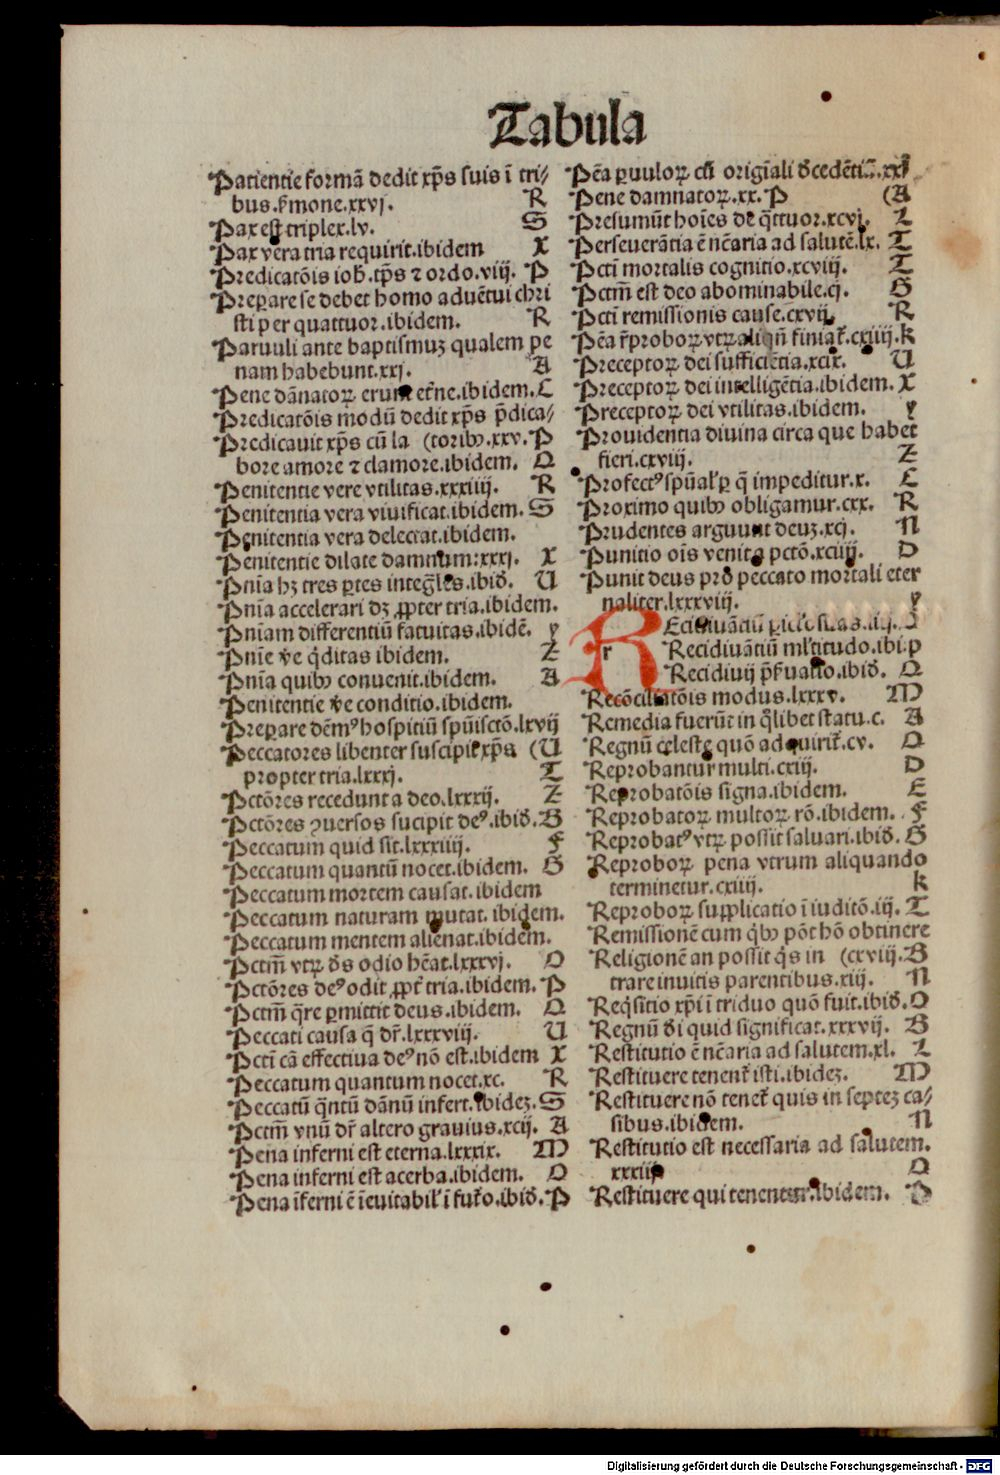 Tabula
Patientie formã dedit xp̃s suis ĩ tri-
bus. ẜmone.xxvj. R
Pax est triplex.lv. S
Pax vera tria requirit.ibidem X
Predicatõis ioh̃.tp̃s ⁊ ordo.viij. P
Preꝑare se debet homo aduẽtui chri
sti per quattuor.ibidem. R
Paruuli ante baptismuz qualem pe
nam habebunt.xxj. A
Pene dãnatoꝝ erunt et̃ne.ibidem. C
Predicatõis modũ dedit xp̃s p̃dica-
Predicauit xp̃s cũ la (toribꝫ.xxv. P
bore amore ⁊ clamore.ibidem. Q
Penitentie vere vtilitas.xxxiiij. R
Penitentia vera viuificat.ibidem. S
Penitentia vera delectat.ibidem.
Penitentie dilate damnum:xxxj. X
Pñia hꝫ tres ꝑtes integ̃les.ibid̃. U
Pñia accelerari dꝫ ꝓpter tria.ibidem.
Pñiam differentiũ fatuitas.ibidẽ. y
Pñie ṽe q̃ditas ibidem. Z
Pñia quibꝫ conuenit.ibidem. A
Penitentie ṽe conditio.ibidem.
Preꝑare dẽmꝰ hospitiũ spũisctõ.lxvij
Peccatores libenter suscipit xp̃s (U
propter tria.lxxxj. T
Pctõres recedunt a deo.lxxxij. Z
Pctõres ꝯuersos sucipit deꝰ.ibid̃. B
Peccatum quid sit.lxxxiiij. F
Peccatum quantũ nocet.ibidem. G
Peccatum mortem causat.ibidem
Peccatum naturam mutat.ibidem.
Peccatum mentem alienat.ibidem.
Pctm̃ vtꝝ de̾s odio hẽat.lxxxvj. O
Pctõres deꝰ odit ꝓpt̃ tria.ibidem. P
Pctm̃ q̃re ꝑmittit deus.ibidem. Q
Peccati causa q̃ dr̃.lxxxviij. U
Pcti cã effectiua deꝰ nõ est.ibidem X
Peccatum quantum nocet.xc. R
Peccatũ q̃ntũ dãnũ infert.ibidez. S
Pctm̃ vnũ dr̃ altero grauius.xcij. A
Pena inferni est eterna.lxxxix. M
Pena inferni est acerba.ibidem. O
Pena ĩferni ẽ ĩeuitabil̃ ĩ fut̃o.ibid̃. P
Pẽa ꝑuuloꝝ cũ origĩali d̾cedẽtiũ.xxj
Pene damnatoꝝ.xx. P (A
Presumũt hoĩes de q̃ttuor.xcvj. L
Perseuerãtia ẽ nẽcaria ad salutẽ.lx. T
Pcti mortalis cognitio.xcviij. T
Pctm̃ est deo abominabile.cj. G
Pcti remissionis cause.cxvij. R
Pẽa r̃proboꝝ vtꝝ aliqñ finiat̃.cxiiij. k
Preceptoꝝ dei sufficiẽtia.xcix. U
Preceptoꝝ dei intelligẽtia.ibidem. X
Preceptoꝝ dei vtilitas.ibidem. y
Prouidentia diuina circa que habet
fieri.cxviij. Z
Profectꝰ spũal̃ꝑ q̃ impeditur.x. C
Proximo quibꝫ obligamur.cxx. R
Prudentes arguunt deuz.xcj. N
Punitio oĩs venit a pctõ.xciiij. D
Punit deus pro peccato mortali eter
naliter.lxxxviij. y
REcidiuãtiũ
r Recidiuãtiũ ml̃titudo.ibi. p
Recidiuij p̃ẜuatio.ibid̃. Q
Recõciliatõis modus.lxxxv. M
Remedia fuerũt in q̃libet statu.c. A
Regnũ celeste quõ adquirit̃.cv. Q
Reprobantur multi.cxiij. D
Reprobatõis signa.ibidem. E
Reprobatoꝝ multoꝝ rõ.ibidem. F
Reprobatꝰ vtꝝ possit saluari.ibid̃. G
Reproboꝝ pena vtrum aliquando
terminetur.cxiiij. k
Reproboꝝ supplicatio ĩ iuditõ.iij. T
Remissionẽ cum q̃bꝫ põt hõ obtinere
Religionẽ an possit q̃s in (cxviij. B
trare inuitis parentibus.xiij. N
Req̃sitio xp̃i ĩ triduo quõ fuit.ibid̃. O
Regnũ d̾i quid significat.xxxvij. B
Restitutio ẽ nẽcaria ad salutem.xl. L
Restituere tenent̃ isti.ibidez. M
Restituere nõ tenet̃ quis in septez ca-
sibus.ibidem. N
Restitutio est necessaria ad salutem.
xxxiij O
Restituere qui tenentur.ibidem. P
Digitalisierung gefördert durch die Deutsche Forschungsgemeinschaft - DFG